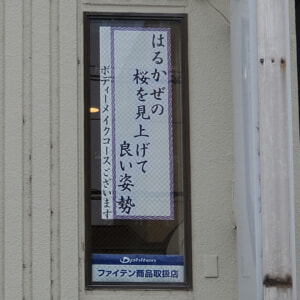 はるかぜの
桜を見上げて
良い姿勢
ボディーメイクコースございます
phiten
ファイテン商品取扱店